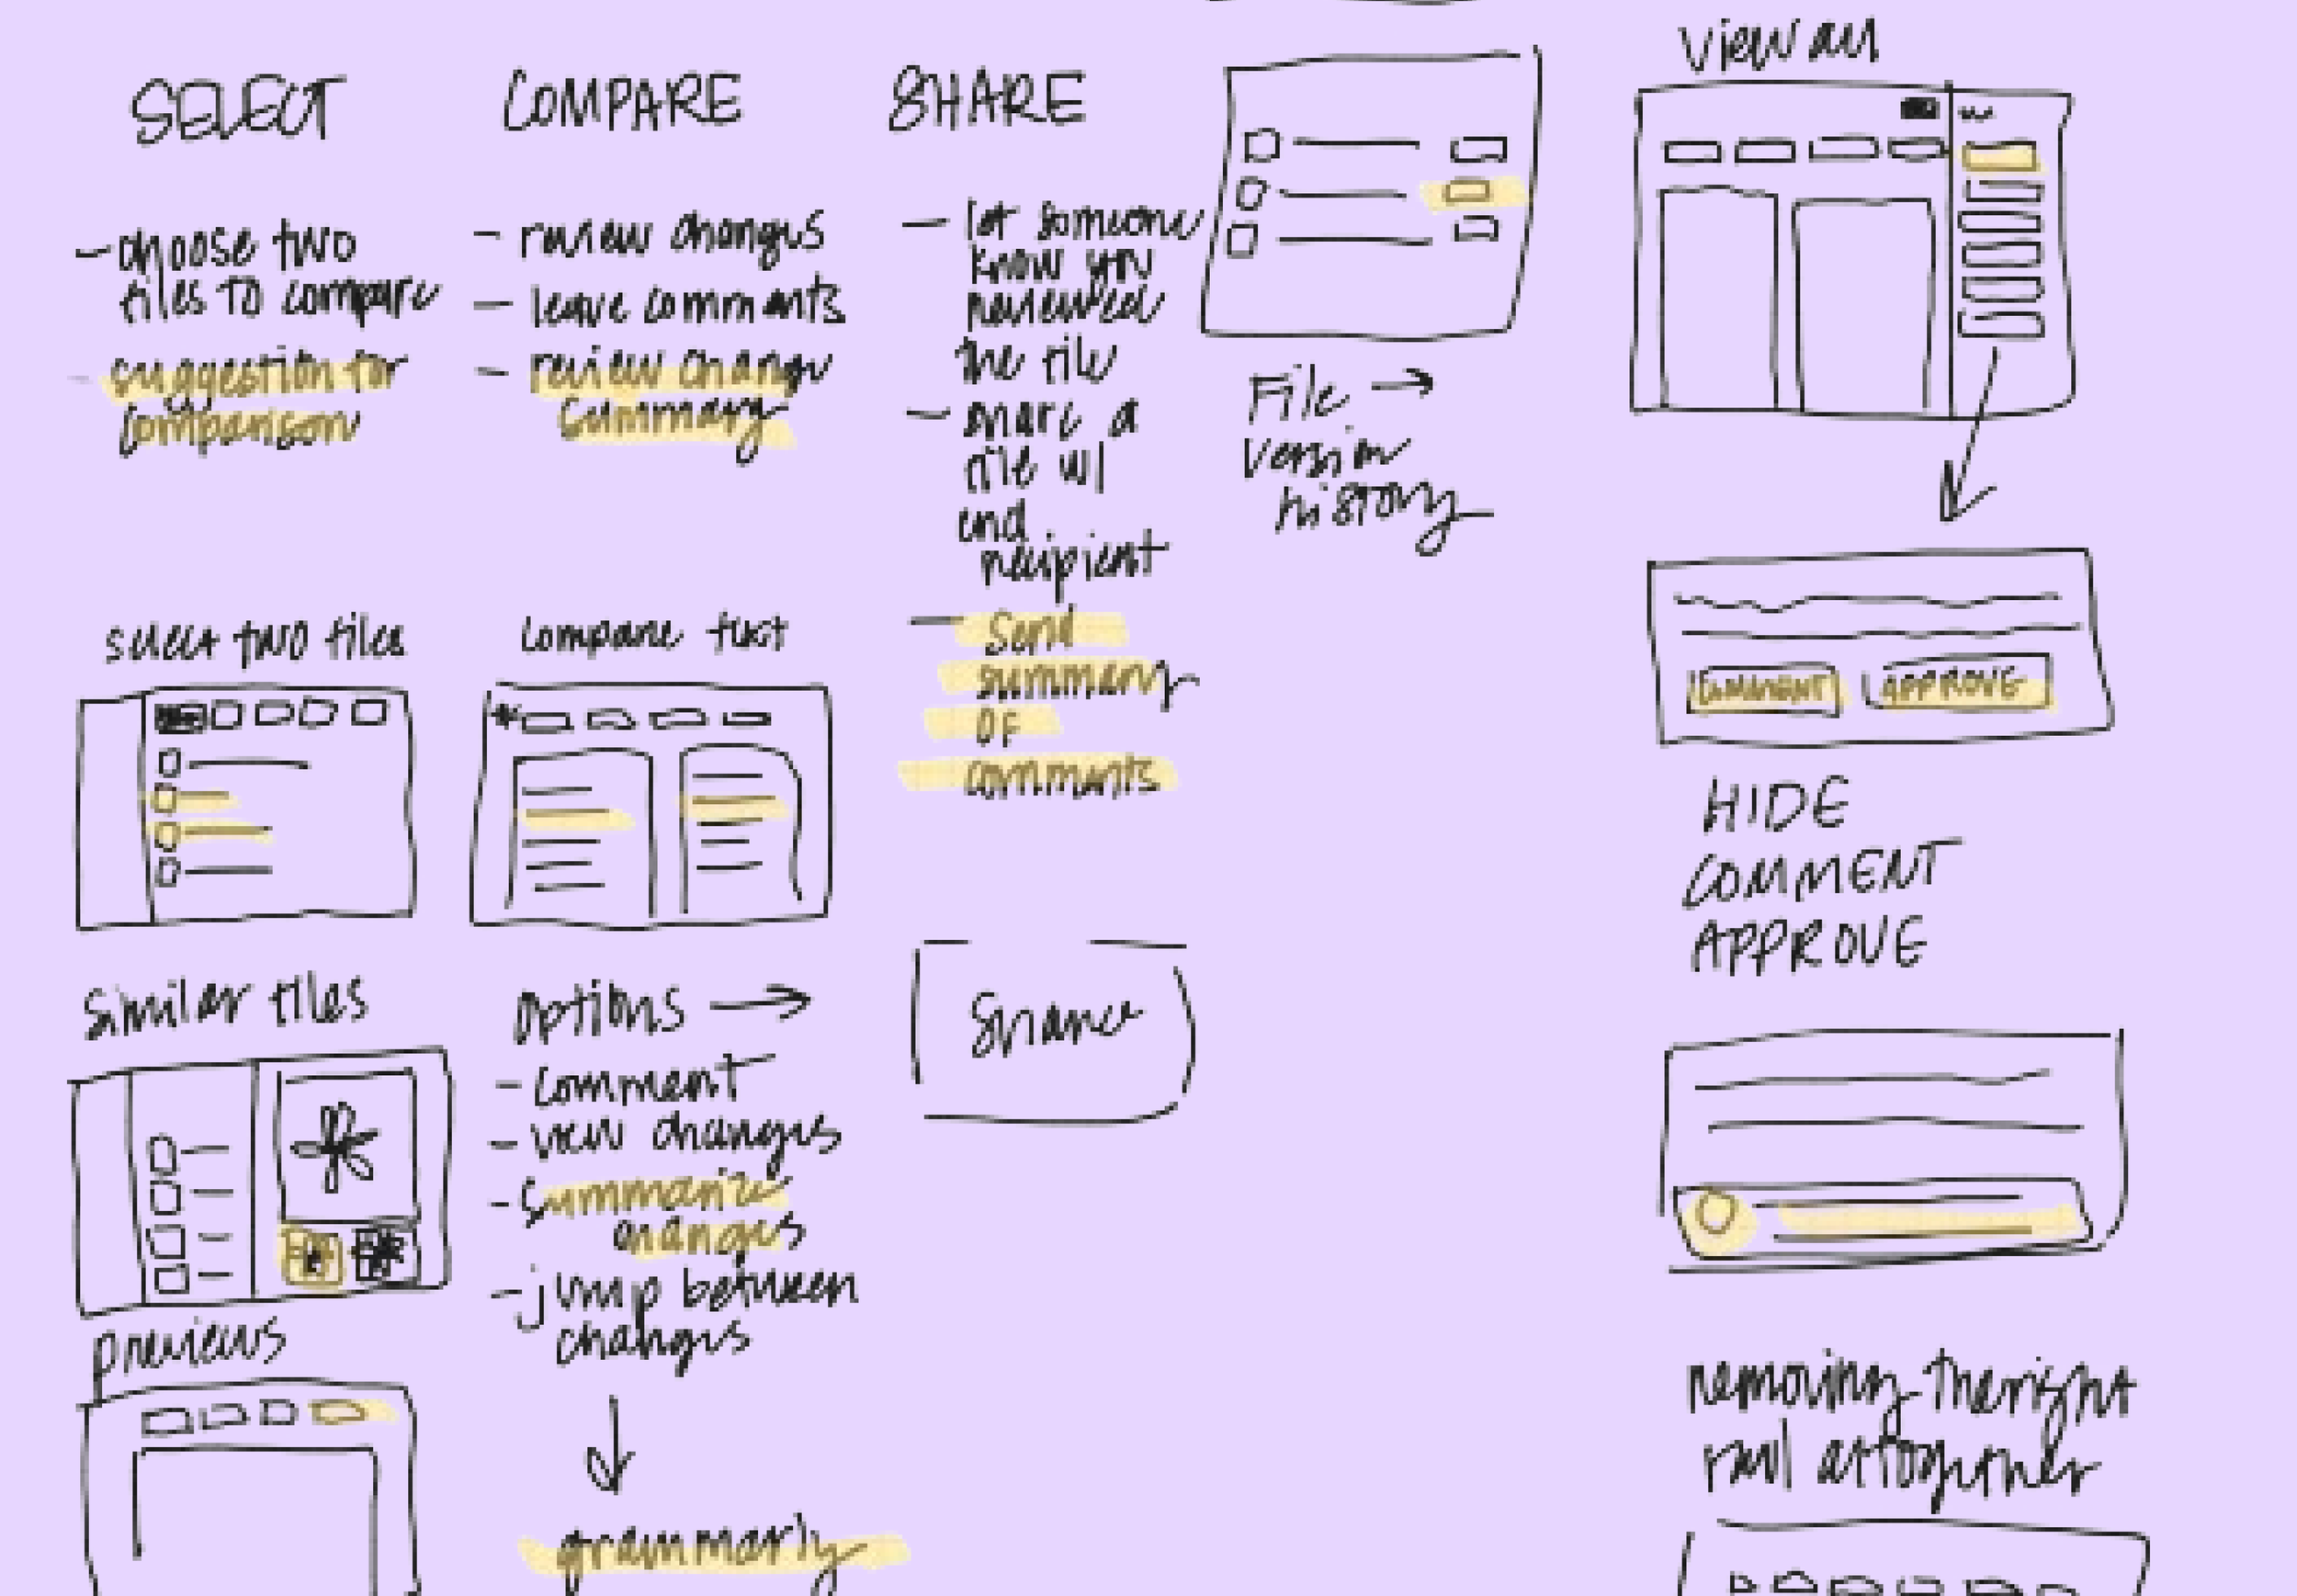 SELECT
- choose two
files to compare
- suggestion for
comparison
select two files
similar files
previews
COMPARE
- review changes
- leave comments
- review change
summary
compare text
options →
- comment
- view changes
- summarize
changes
- jump between
changes
grammarly
SHARE
- let someone
know you
reviewed
the file
- share a
file w/
end
recipient
- Send
summary
OF
comments
Share
File →
version
history
view all
COMMENT
APPROVE
HIDE
COMMENT
APPROVE
removing the right
rail altogether